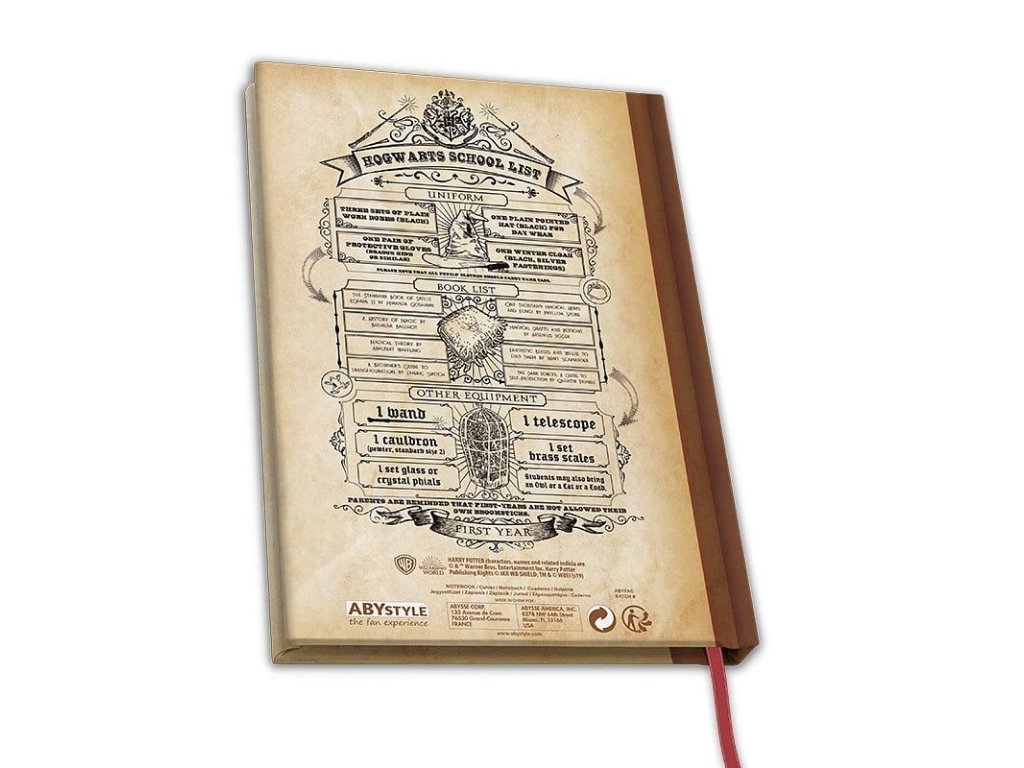 HOGWARTS SCHOOL LIST
UNIFORM
THREE SETS OF PLAIN
WORK ROBES (BLACK)
ONE PLAIN POINTED
HAT (BLACK) FOR
DAY WEAR
ONE PAIR OF
PROTECTIVE GLOVES
(DRAGON HIDE
OR SIMILAR)
ONE WINTER CLOAK
(BLACK, SILVER
FASTENINGS)
PLEASE NOTE THAT ALL PUPILS' CLOTHES SHOULD CARRY NAME TAGS.
BOOK LIST
THE STANDARD BOOK OF SPELLS
(GRADE 1) BY MIRANDA GOSHAWK
ONE THOUSAND MAGICAL HERBS
AND FUNGI BY PHYLLIDA SPORE
A HISTORY OF MAGIC BY
BATHILDA BAGSHOT
MAGICAL DRAFTS AND POTIONS
BY ARSENIUS JIGGER
MAGICAL THEORY BY
ADALBERT WAFFLING
FANTASTIC BEASTS AND WHERE TO
FIND THEM BY NEWT SCAMANDER
A BEGINNER'S GUIDE TO
TRANSFIGURATION BY EMERIC SWITCH
THE DARK FORCES: A GUIDE TO
SELF-PROTECTION BY QUENTIN TRIMBLE
OTHER EQUIPMENT
1 wand
1 telescope
1 cauldron
(pewter, standard size 2)
1 set
brass scales
1 set glass or
crystal phials
Students may also bring
an Owl or a Cat or a Toad.
PARENTS ARE REMINDED THAT FIRST-YEARS ARE NOT ALLOWED THEIR
OWN BROOMSTICKS.
FIRST YEAR
WB
WIZARDING
WORLD
HARRY POTTER characters, names and related indicia are
© & ™ Warner Bros. Entertainment Inc. Harry Potter
Publishing Rights © JKR WB SHIELD: TM & © WBEI (s19)
NOTEBOOK / Cahier / Notizbuch / Cuaderno / Notatnik
MADE IN CHINA FOR:
ABYSTYLE
the fan experience
ABYSSE CORP.
155 Avenue de Conn
76530 Grand-Couronne
FRANCE
ABYSSE AMERICA, INC.
8378 NW 64th Street
Miami, FL 33166
USA
www.abystyle.com